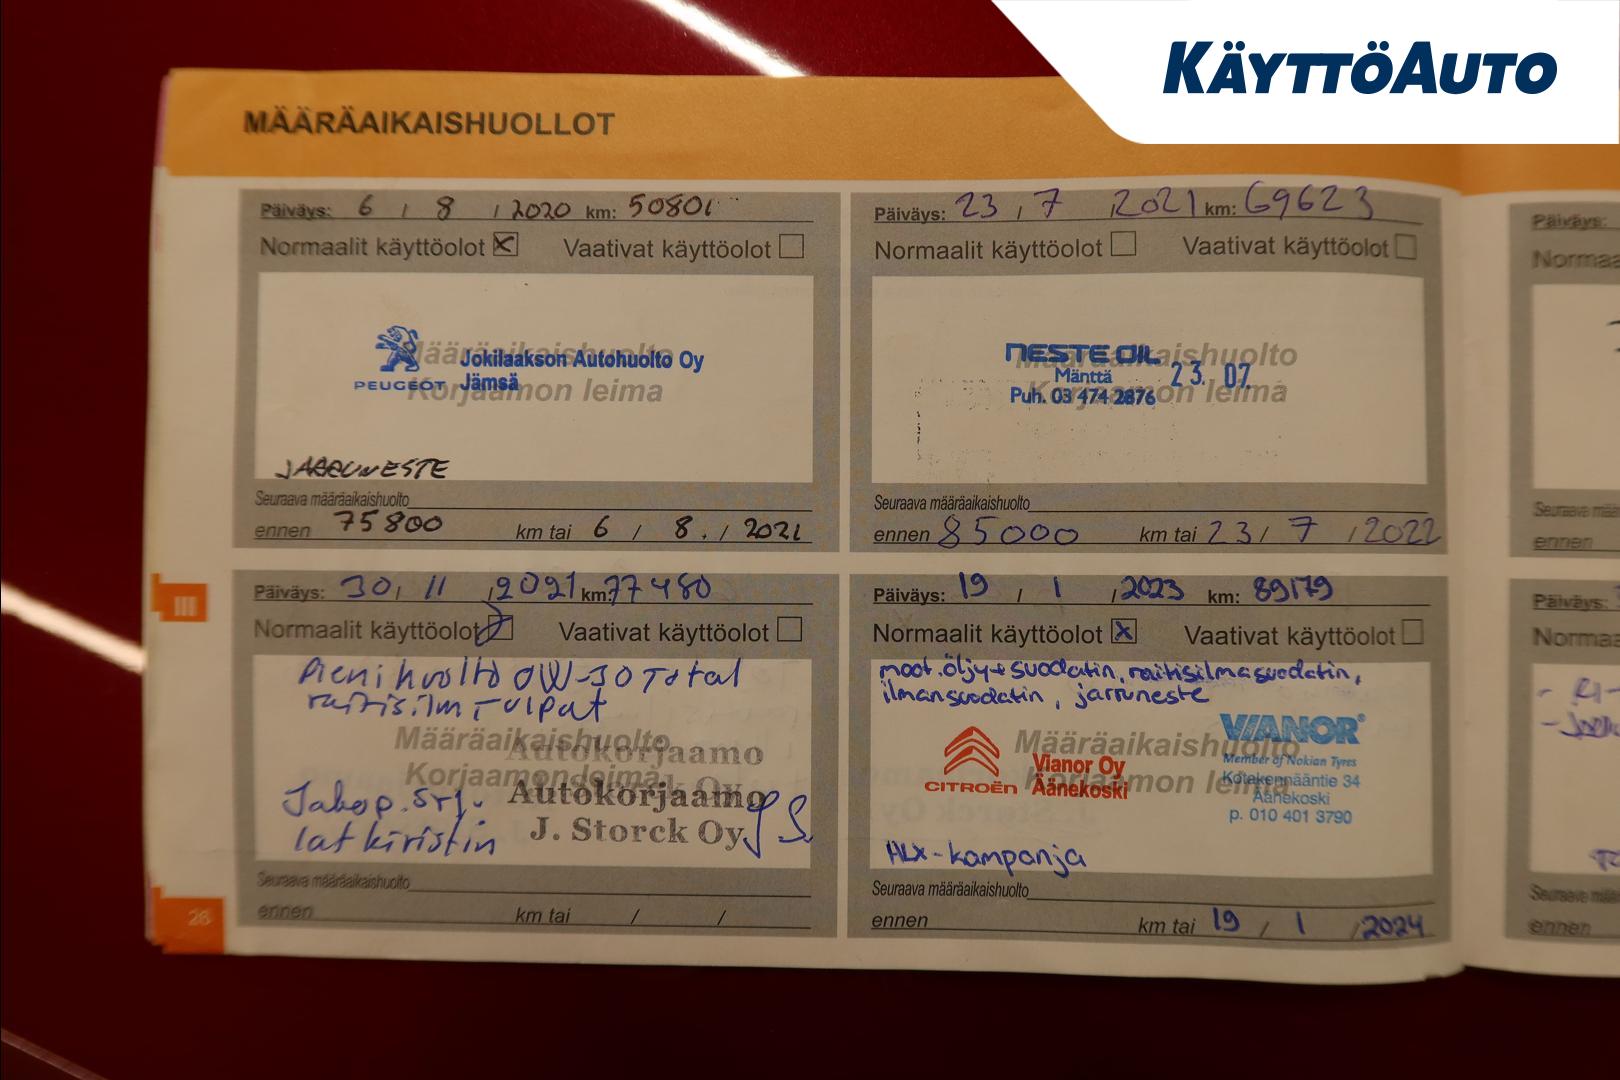 KÄYTTÖAUTO
MÄÄRÄAIKAISHUOLLOT
Päiväys: 6 / 8 / 2020 km: 50801
Normaalit käyttöolot X Vaativat käyttöolot
Määräaikaishuolto
Korjaamon leima
PEUGEOT
Jokilaakson Autohuolto Oy
Jämsä
JARRUNESTE
Seuraava määräaikaishuolto
ennen 75800 km tai 6 / 8 . / 2021
Päiväys: 23 / 7 / 2021 km: 69623
Normaalit käyttöolot Vaativat käyttöolot
Määräaikaishuolto
Korjaamon leima
NESTE OIL
Mänttä 23. 07.
Puh. 03 474 2876
Seuraava määräaikaishuolto
ennen 85000 km tai 23 / 7 / 2022
III
Päiväys: 30 / 11 / 2021 km: 77480
Normaalit käyttöolot Vaativat käyttöolot
Pienihuolto 0W-30 Total
raitisilm, tulpat
Määräaikaishuolto
Korjaamon leima
Autokorjaamo
Autokorjaamo
J. Storck Oy
JS
Jakop. srj.
lat kiristin
Seuraava määräaikaishuolto
ennen km tai / /
26
Päiväys: 19 / 1 / 2023 km: 89179
Normaalit käyttöolot X Vaativat käyttöolot
moot.öljy+suodatin, raitisilmasuodatin,
ilmansuodatin, jarruneste
Määräaikaishuolto
Korjaamon leima
CITROËN
Vianor Oy
Äänekoski
VIANOR®
Member of Nokian Tyres
Kotakennääntie 34
Äänekoski
p. 010 401 3790
HLX-kampanja
Seuraava määräaikaishuolto
ennen km tai 19 / 1 / 2024
Päiväys:
ennen
Päiväys:
ennen